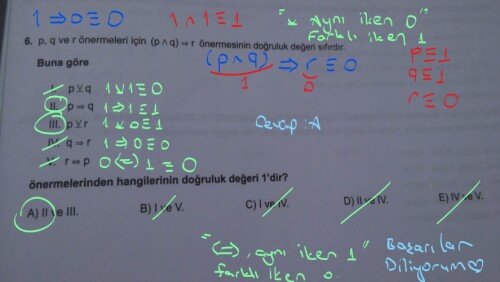 1 ⇒ 0 ≡ 0   1 ∧ 1 ≡ 1   "⊻ Aynı iken 0"
Farklı iken 1
6. p, q ve r önermeleri için (p ∧ q) ⇒ r önermesinin doğruluk değeri sıfırdır.
(p ∧ q) ⇒ r ≡ 0   p ≡ 1
1   0   q ≡ 1
r ≡ 0
Buna göre
I. p ⊻ q   1 ⊻ 1 ≡ 0
II. p ⇒ q   1 ⇒ 1 ≡ 1
III. p ⊻ r   1 ⊻ 0 ≡ 1   Cevap : A
IV. q ⇒ r   1 ⇒ 0 ≡ 0
V. r ⇔ p   0 ⇔ 1 ≡ 0
önermelerinden hangilerinin doğruluk değeri 1'dir?
A) II ve III.   B) I ve V.   C) I ve IV.   D) II ve IV.   E) IV ve V.
"⇔, aynı iken 1"   Başarılar
farklı iken 0.   Diliyorum♡